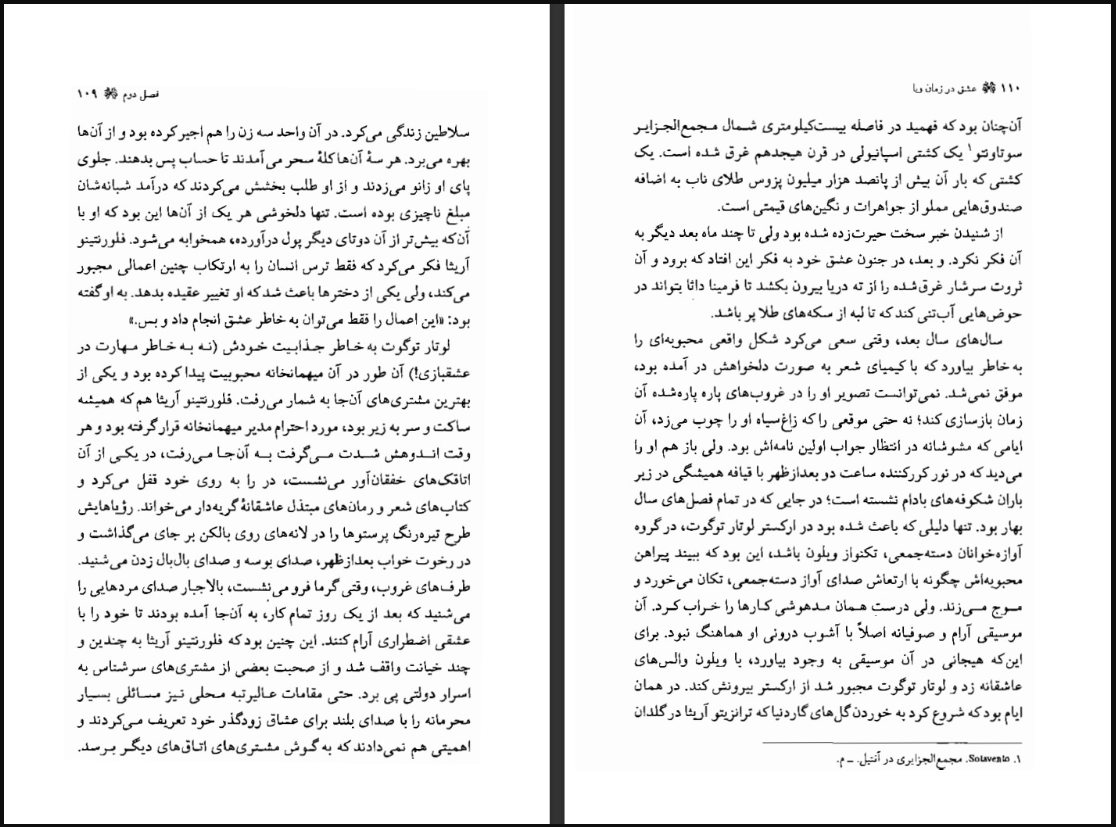 فصل دوم ۱۰۹
سلاطین زندگی می‌کرد. در آن واحد سه زن را هم اجیر کرده بود و از آن‌ها
بهره می‌برد. هر سهٔ آن‌ها کلهٔ سحر می‌آمدند تا حساب پس بدهند. جلوی
پای او زانو می‌زدند و از او طلب بخشش می‌کردند که درآمد شبانه‌شان
مبلغ ناچیزی بوده است. تنها دلخوشی هر یک از آن‌ها این بود که او با
آن‌که بیش‌تر از آن دوتای دیگر پول درآورده، همخوابه می‌شود. فلورنتینو
آریثا فکر می‌کرد که فقط ترس انسان را به ارتکاب چنین اعمالی مجبور
می‌کند، ولی یکی از دخترها باعث شد که او تغییر عقیده بدهد. به او گفته
بود: «این اعمال را فقط می‌توان به خاطر عشق انجام داد و بس.»
لوتار توگوت به خاطر جذابیت خودش (نه به خاطر مهارت در
عشقبازی!) آن طور در آن میهمانخانه محبوبیت پیدا کرده بود و یکی از
بهترین مشتری‌های آن‌جا به شمار می‌رفت. فلورنتینو آریثا هم که همیشه
ساکت و سر به زیر بود، مورد احترام مدیر میهمانخانه قرار گرفته بود و هر
وقت اندوهش شدت می‌گرفت به آن‌جا می‌رفت، در یکی از آن
اتاقک‌های خفقان‌آور می‌نشست، در را به روی خود قفل می‌کرد و
کتاب‌های شعر و رمان‌های مبتذل عاشقانهٔ گریه‌دار می‌خواند. رؤیاهایش
طرح تیره‌رنگ پرستوها را در لانه‌های روی بالکن بر جای می‌گذاشت و
در رخوت خواب بعدازظهر، صدای بوسه و صدای بال‌بال زدن می‌شنید.
طرف‌های غروب، وقتی گرما فرو می‌نشست، بالاجبار صدای مردهایی را
می‌شنید که بعد از یک روز تمام کار، به آن‌جا آمده بودند تا خود را با
عشقی اضطراری آرام کنند. این چنین بود که فلورنتینو آریثا به چندین و
چند خیانت واقف شد و از صحبت بعضی از مشتری‌های سرشناس به
اسرار دولتی پی برد. حتی مقامات عالیرتبه محلی نیز مسائلی بسیار
محرمانه را با صدای بلند برای عشاق زودگذر خود تعریف می‌کردند و
اهمیتی هم نمی‌دادند که به گوش مشتری‌های اتاق‌های دیگر برسد.
۱۱۰ عشق در زمان وبا
آن‌چنان بود که فهمید در فاصله بیست‌کیلومتری شمال مجمع‌الجزایر
سوتاونتو۱ یک کشتی اسپانیولی در قرن هیجدهم غرق شده است. یک
کشتی که بار آن بیش از پانصد هزار میلیون پزوس طلای ناب به اضافه
صندوق‌هایی مملو از جواهرات و نگین‌های قیمتی است.
از شنیدن خبر سخت حیرت‌زده شده بود ولی تا چند ماه بعد دیگر به
آن فکر نکرد. و بعد، در جنون عشق خود به فکر این افتاد که برود و آن
ثروت سرشار غرق‌شده را از ته دریا بیرون بکشد تا فرمینا داثا بتواند در
حوض‌هایی آب‌تنی کند که تا لبه از سکه‌های طلا پر باشد.
سال‌های سال بعد، وقتی سعی می‌کرد شکل واقعی محبوبه‌ای را
به خاطر بیاورد که با کیمیای شعر به صورت دلخواهش در آمده بود،
موفق نمی‌شد. نمی‌توانست تصویر او را در غروب‌های پاره پاره‌شده آن
زمان بازسازی کند؛ نه حتی موقعی را که زاغ‌سیاه او را چوب می‌زد، آن
ایامی که مشوشانه در انتظار جواب اولین نامه‌اش بود. ولی باز هم او را
می‌دید که در نور کورکننده ساعت دو بعدازظهر با قیافه همیشگی در زیر
باران شکوفه‌های بادام نشسته است؛ در جایی که در تمام فصل‌های سال
بهار بود. تنها دلیلی که باعث شده بود در ارکستر لوتار توگوت، در گروه
آوازه‌خوانان دسته‌جمعی، تکنواز ویلون باشد، این بود که ببیند پیراهن
محبوبه‌اش چگونه با ارتعاش صدای آواز دسته‌جمعی، تکان می‌خورد و
موج می‌زند. ولی درست همان مدهوشی کارها را خراب کرد. آن
موسیقی آرام و صوفیانه اصلاً با آشوب درونی او هماهنگ نبود. برای
این‌که هیجانی در آن موسیقی به وجود بیاورد، با ویلون والس‌های
عاشقانه زد و لوتار توگوت مجبور شد از ارکستر بیرونش کند. در همان
ایام بود که شروع کرد به خوردن گل‌های گاردنیا که ترانزیتو آریثا در گلدان
۱. Sotavento. مجمع‌الجزایری در آنتیل. ـ م.